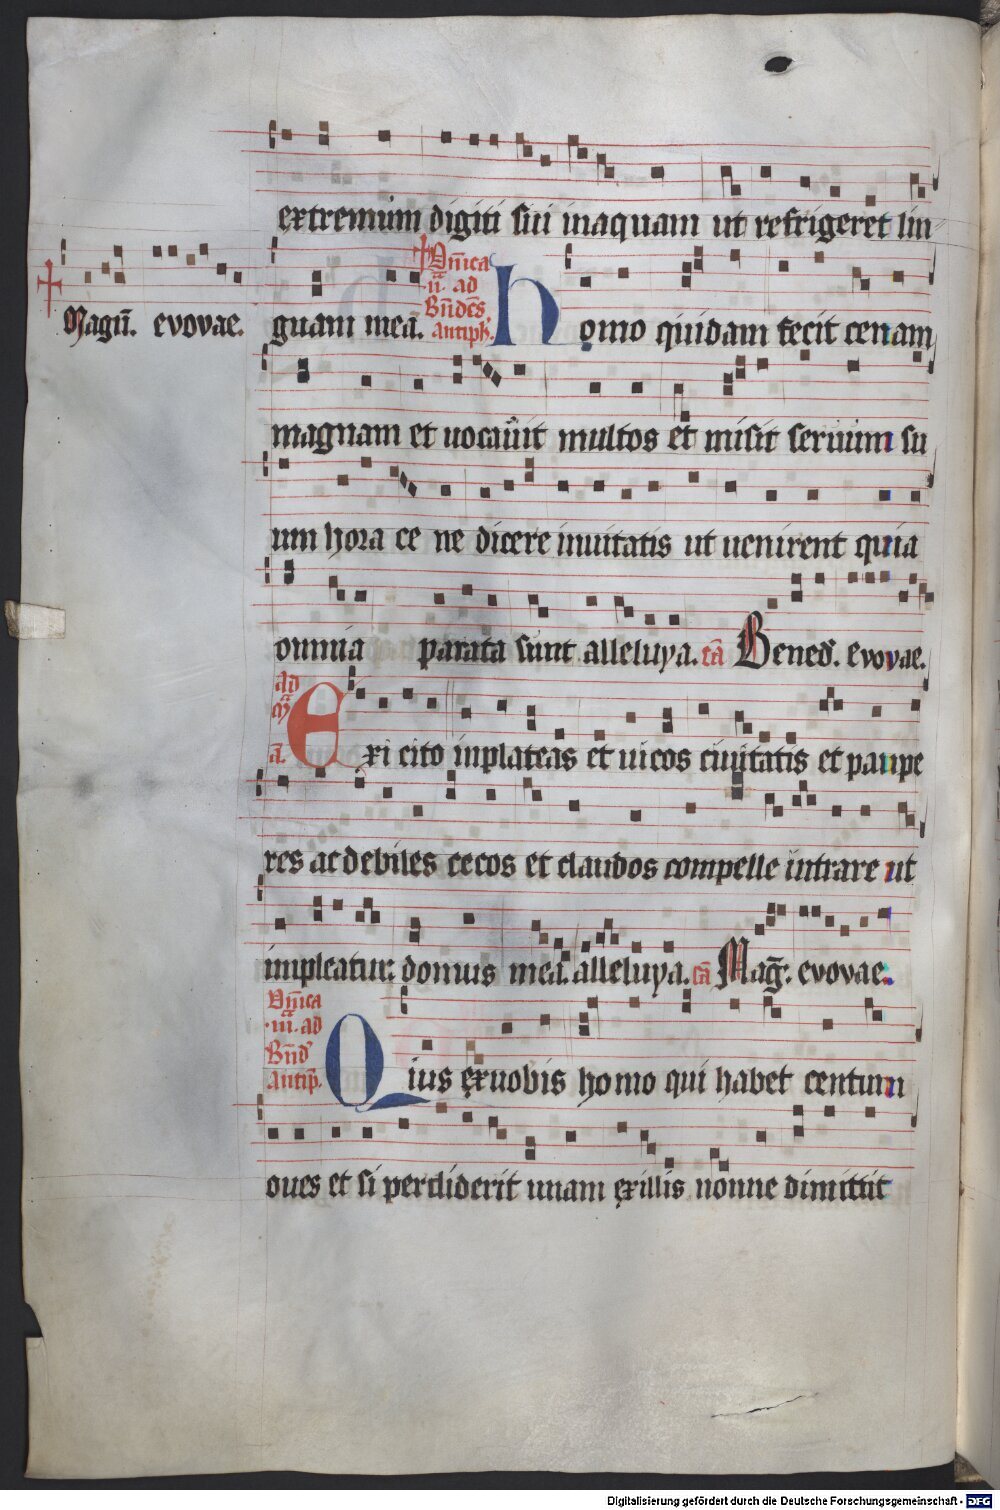 extremum digiti sui inaquam ut refrigeret lin
Magn̄. evovae.
guam meā.
Dn̄ica
ii ad
Bn̄dc̄s
antiph.
homo quidam fecit cenam
magnam et uocauit multos et misit seruum su
um hora ce ne dicere inuitatis ut uenirent quia
omnia parata sunt alleluya. cā Bened. evovae.
ad
m̄
a.
Exi cito inplateas et uicos ciuitatis et paupe
res ac debiles cecos et claudos compelle intrare ut
impleatur: domus mea. alleluya. cā Mag. evovae.
Dn̄ica
iii. ad
Bn̄d
antip.
Quis exuobis homo qui habet centum
oues et si perdiderit unam exillis nonne dimittit
Digitalisierung gefördert durch die Deutsche Forschungsgemeinschaft - DFG